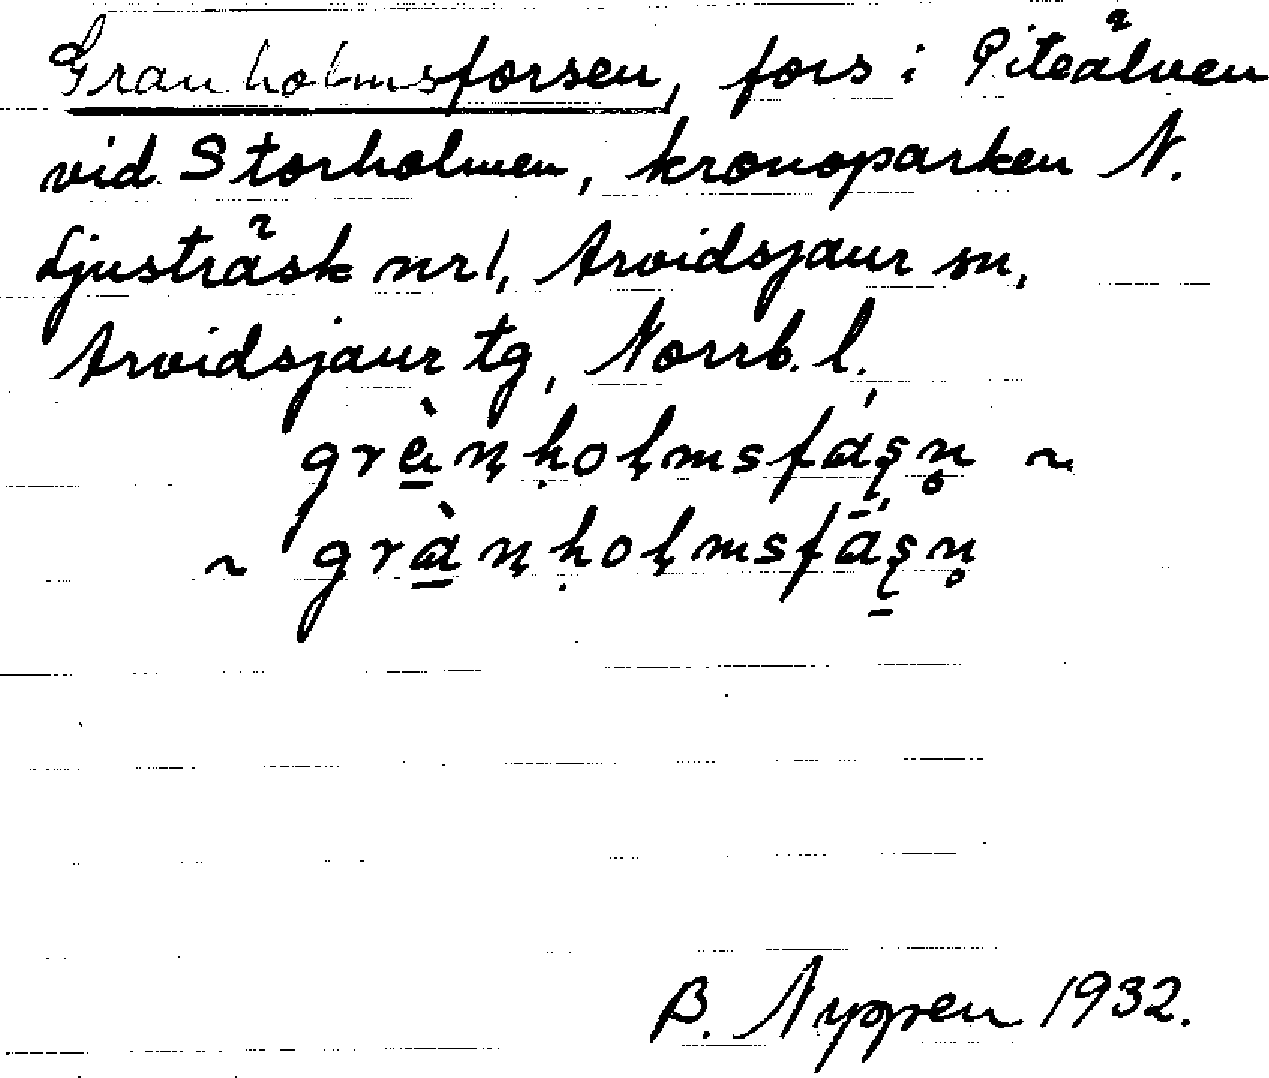 Granholmsforsen, fors i Piteälven
vid Storholmen, kronoparken N.
Ljusträsk nr 1, Arvidsjaur sn,
Arvidsjaur tg, Norrb. l.
B. Nygren 1932.